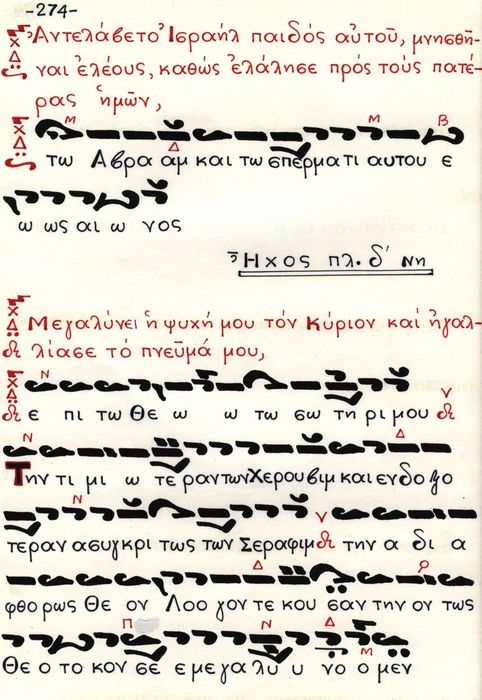 -274-
Ἀντελάβετο Ἰσραήλ παιδός αὐτοῦ, μνησθῆ-
ναι ἐλέους, καθώς ἐλάλησε πρός τούς πατέ-
ρας ἡμῶν,
τω Αβρα αμ και τω σπερμα τι αυτου ε
ω ως αι ω νος
Ἦχος πλ. δ´ Νη
Μεγαλύνει ἡ ψυχή μου τόν Κύριον καί ἠγαλ-
λίασε τό πνεῦμά μου,
ε πι τω Θε ω ω τω σω τη ρι μου
Την τι μι ω τε ραν των Χερουβιμ και ενδο ξο
τεραν ασυγκρι τως των Σεραφιμ την α δι α
φθο ρως Θε ον Λοο γον τε κου σαν την ον τως
Θε ο το κον σε ε μεγα λυ υ νο ο μεν